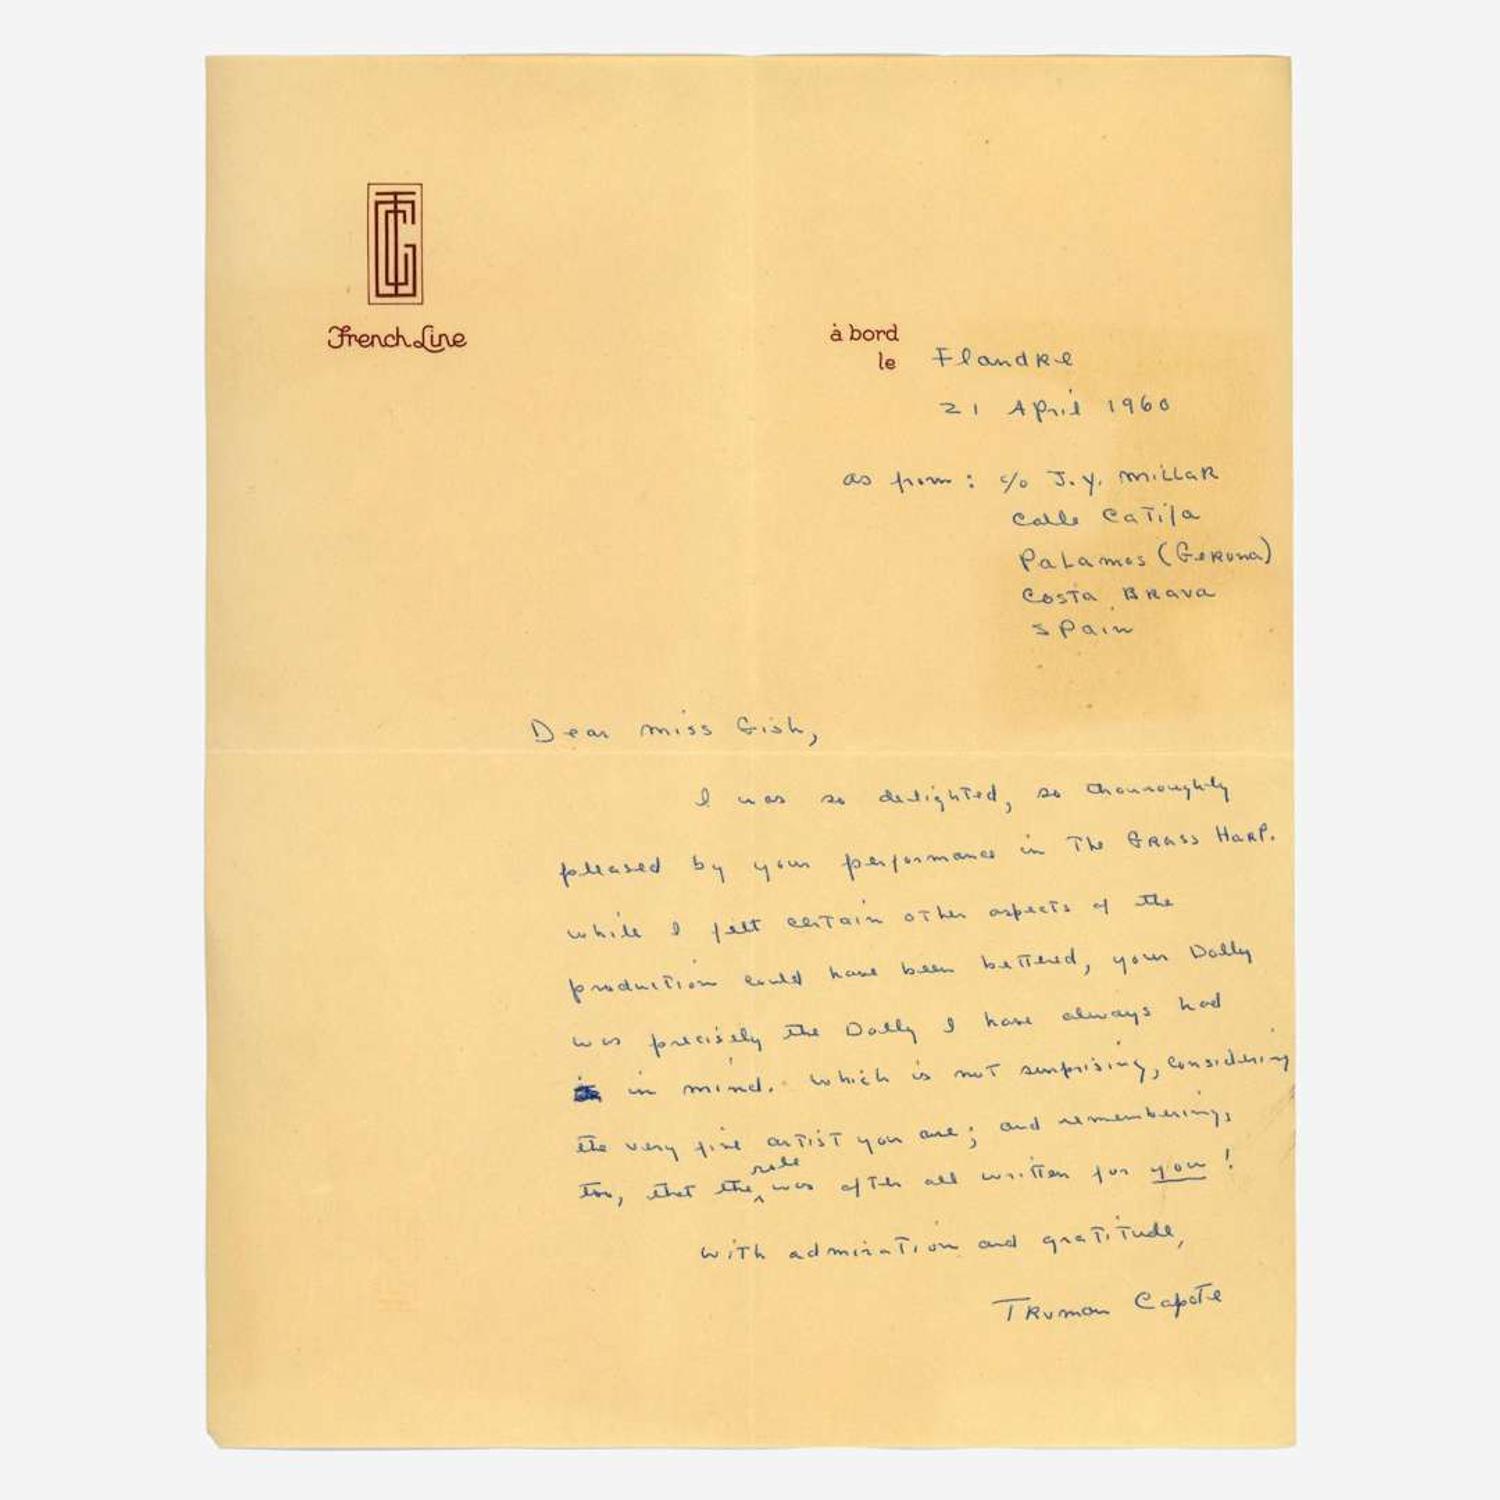 French Line
à bord
le Flandre
21 April 1960
as from: c/o J.Y. Millar
Calle Catifa
Palamos (Gerona)
Costa Brava
Spain
Dear Miss Gish,
I was so delighted, so thouroughly
pleased by your performance in The Grass Harp.
while I felt certain other aspects of the
production could have been bettered, your Dolly
was precisely the Dolly I have always had
in mind. Which is not surprising, considering
the very fine artist you are; and remembering,
too, that the role was after all written for you!
With admiration and gratitude,
Truman Capote